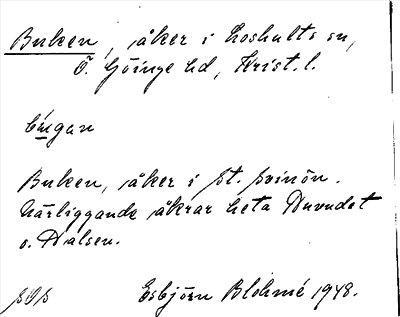 Buken, åker i Loshults sn,
Ö. Göinge hd, Krist. l.
Buken, åker i st. Svinön.
Närliggande åkrar heta Huvudet
o. Halsen.
Esbjörn Blohmé 1948.